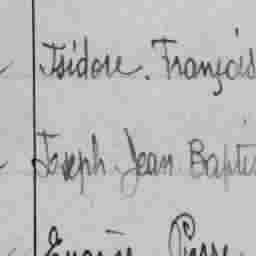 Isidore. François
Joseph Jean Baptis
Eugène Pierre